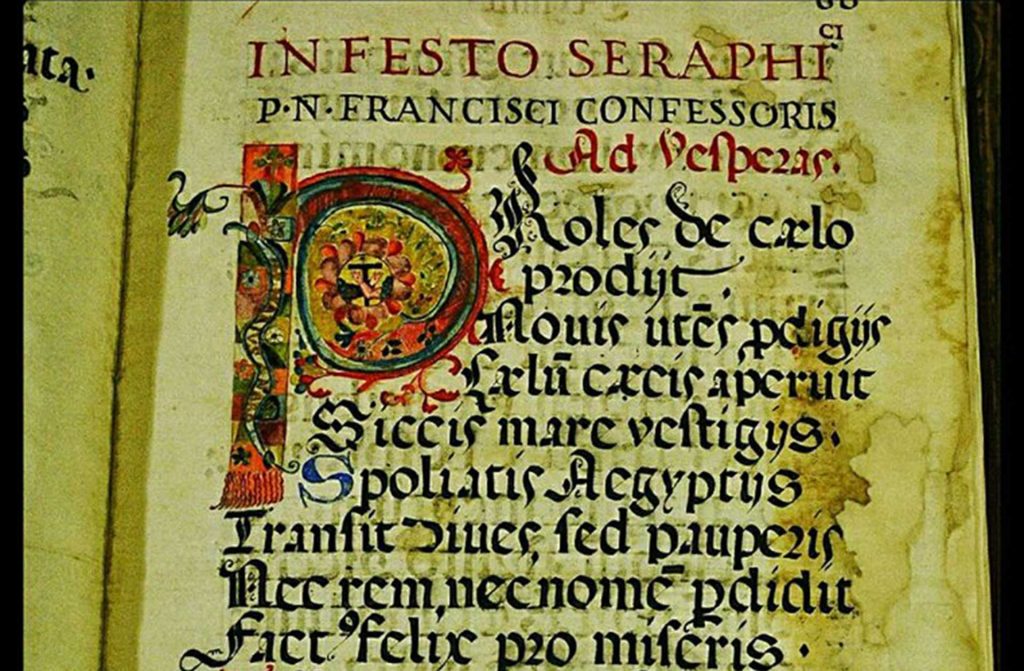 ata.
IN FESTO SERAPHICI
P·N·FRANCISCI CONFESSORIS
Ad Veſperas.
PRoles de cælo
prodijt.
Nouis utēs ꝓdigijs
Cælū cæcis aperuit
Siccis mare veſtigijs.
Spoliatis Aegyptijs
Tranſit diues, ſed pauperis
Nec rem, nec nomē ꝑdidit
Factꝰ felix pro miſeris.